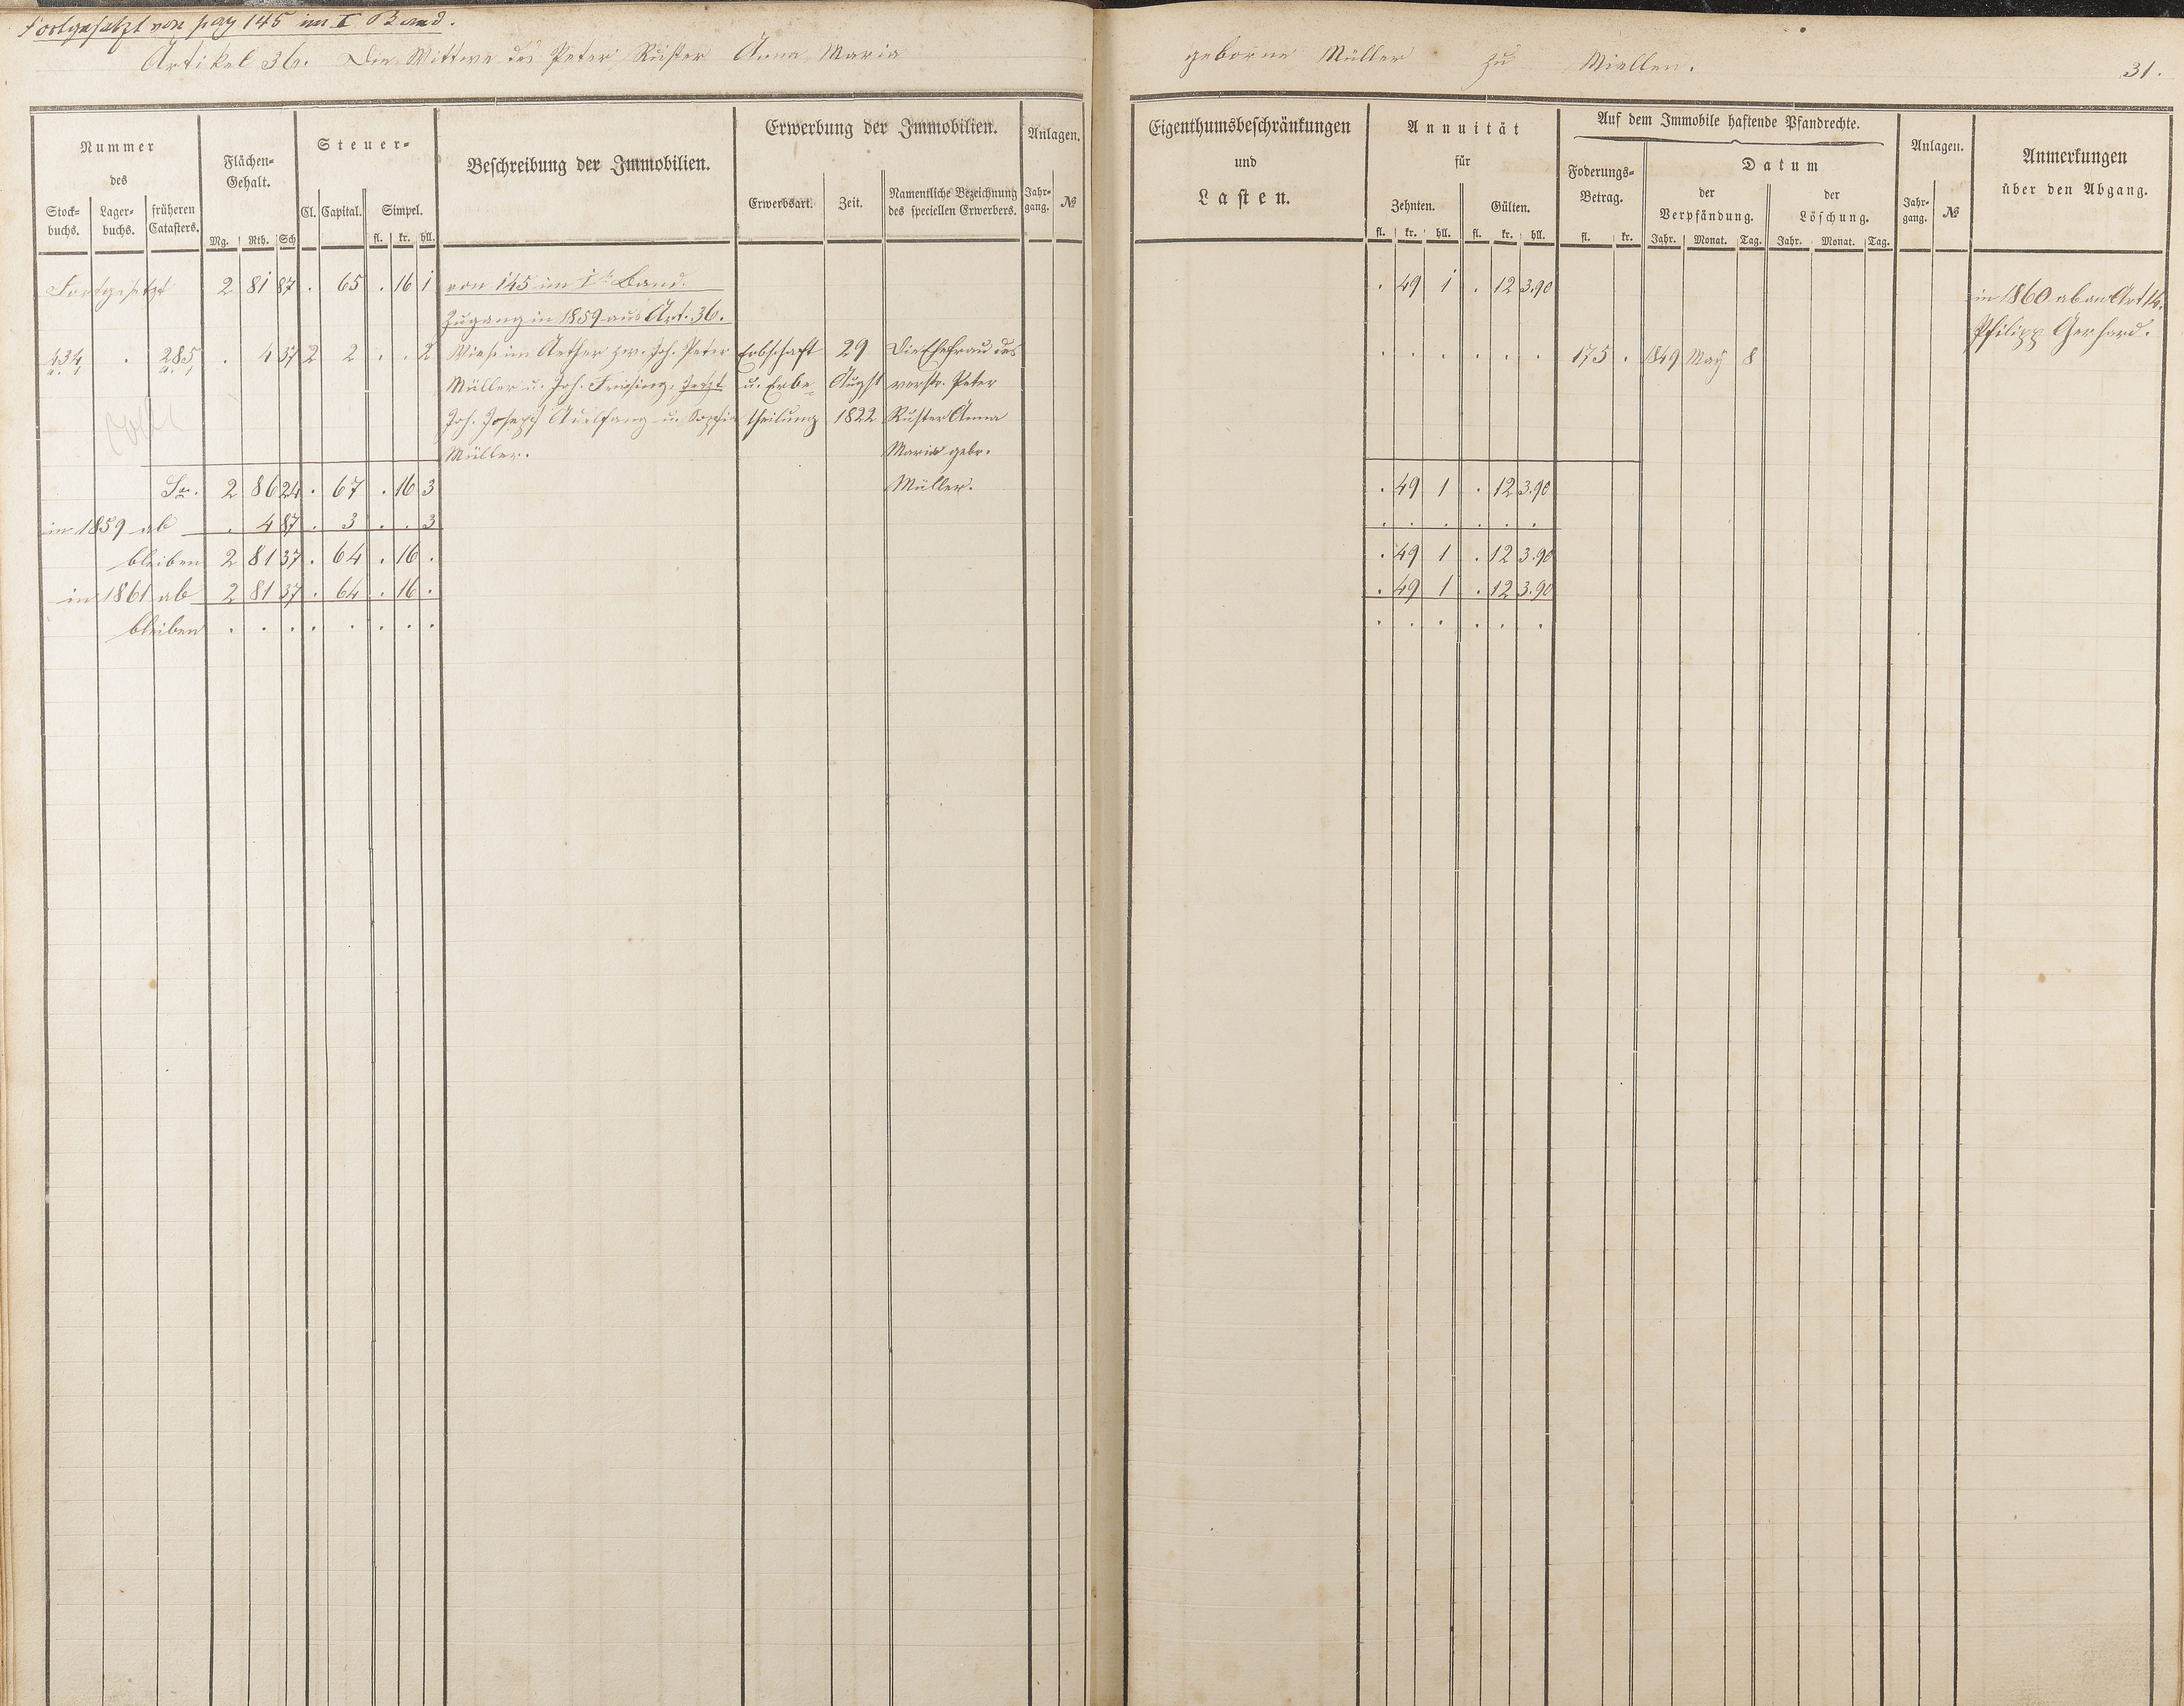 Fortgesetzt von pag 145 im I Band.
Artikel 36. Die Wittwe des Peter Ruster Anna Maria geborne Müller zu Miellen.
31.
Nummer des
Stock-buchs. Lager-buchs. früheren Catasters.
Flächen-Gehalt.
Mg. Rth. Sch
Steuer-
Cl. Capital. Simpel.
fl. kr. hll.
Beschreibung der Immobilien.
Erwerbung der Immobilien.
Erwerbsart. Zeit. Namentliche Bezeichnung des speciellen Erwerbers.
Anlagen.
Jahr-gang. №
Eigenthumsbeschränkungen und Lasten.
Annuität für
Zehnten. Gülten.
fl. kr. hll. fl. kr. hll.
Auf dem Immobile haftende Pfandrechte.
Foderungs-Betrag.
fl. kr.
Datum
der Verpfändung. der Löschung.
Jahr. Monat. Tag. Jahr. Monat. Tag.
Anlagen.
Jahr-gang. №
Anmerkungen über den Abgang.
Fortgesetzt 2 81 87 . 65 . 16 1 von 145 im I. Band. . 49 1 . 12 3.90 in 1860 ab an Art 14.
Zugang in 1859 aus Art. 36. Philipp Gerhard.
434 . 285 . 4 37 2 2 . . 2 Wiese im Aether zw. Joh. Peter Erbschaft 29 Die Ehefrau des . . . . . . 175 . 1849 May 8
Müller u. Joh. jetzt u. Erbe- Augst verstr. Peter
Joh. Joseph Adelfang u. Sophia theilung 1822 Ruster Anna
Müller. Maria gebr.
Sa. 2 86 24 . 67 . 16 3 Müller. . 49 1 . 12 3.90
in 1859 ab . 4 87 . 3 . . 3 . . . . . .
bleiben 2 81 37 . 64 . 16 . . 49 1 . 12 3.90
in 1861 ab 2 81 37 . 64 . 16 . . 49 1 . 12 3.90
bleiben . . . . . . . . . . . . . .